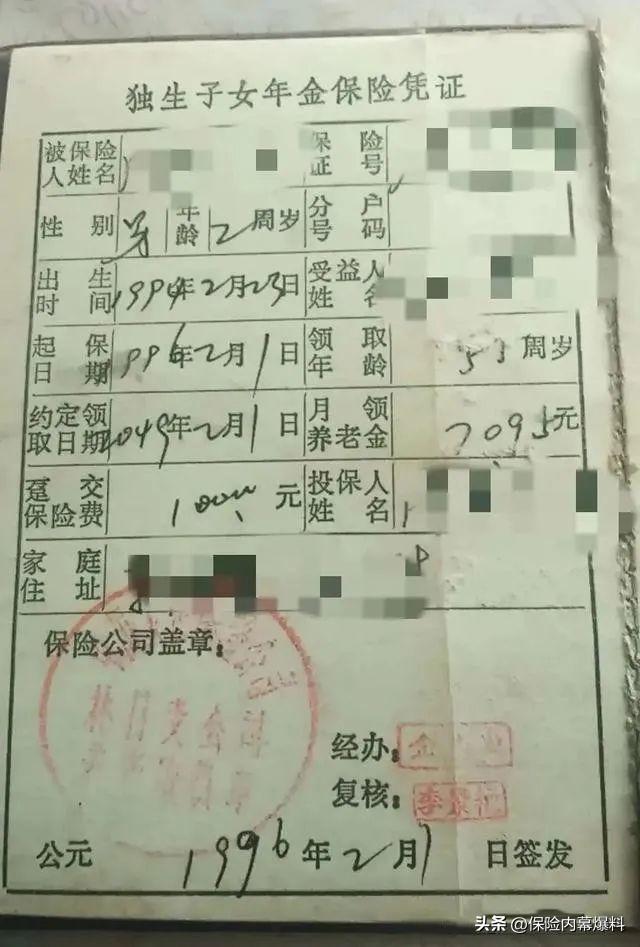 独生子女年金保险凭证
被保险人姓名 保险证号
性别 男 年龄 2周岁 分户号码
出生时间 1994年2月23日 受益人姓名
起保日期 1996年2月1日 领取年龄 周岁
约定领取日期 2049年2月1日 月领养老金 7095元
趸交保险费 元 投保人姓名
家庭住址
保险公司盖章：
经办：
复核：
公元 1996年2月1日签发
头条 @保险内幕爆料